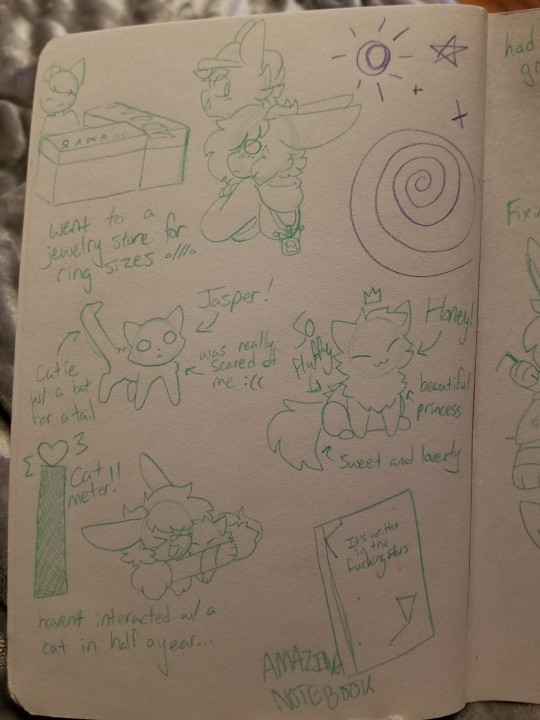 went to a
jewelry store for
ring sizes o///o
Jasper!
Cutie
w/ a bat
for a tail
was really
scared of
me :((
Honey!
so
fluffy
beautiful
princess
Sweet and loverly
Cat
meter!!
havent interacted w/ a
cat in half a year...
It's written
in the
fucking stars
AMAZING
NOTEBOOK
had
Fixi